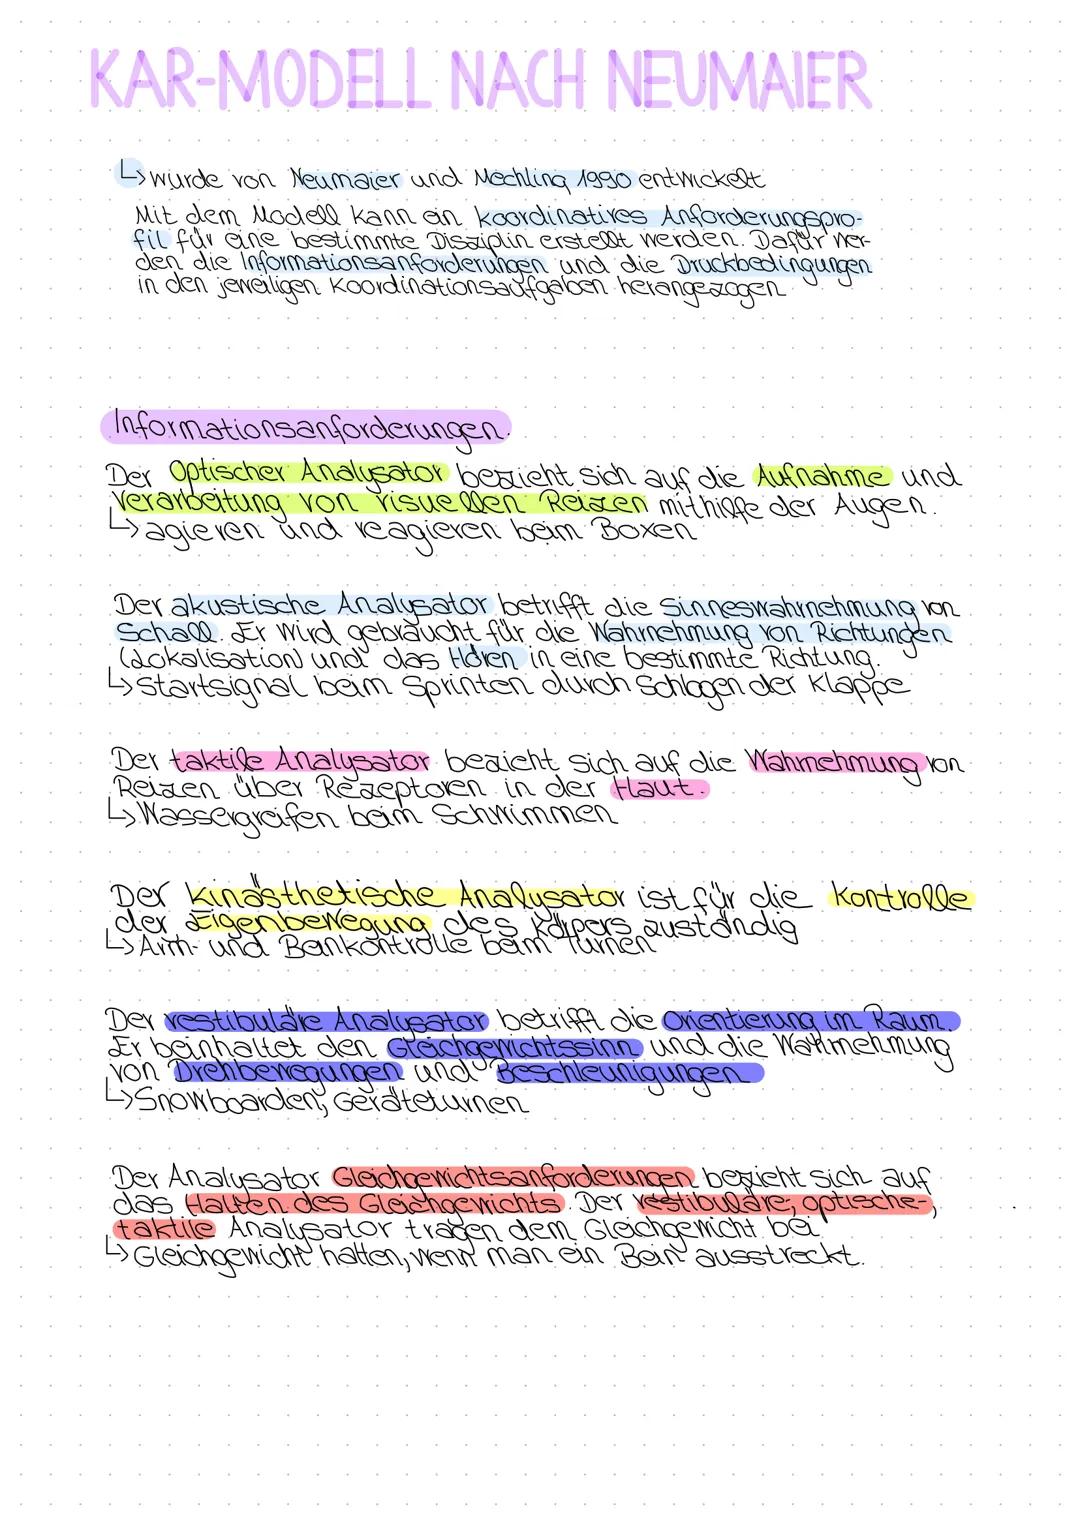 KAR-MODELL NACH NEUMAIER
↳ wurde von Neumaier und Mechling 1990 entwickelt
Mit dem Modell kann ein koordinatives Anforderungspro-
fil für eine bestimmte Disziplin erstellt werden. Dafür wer-
den die Informationsanforderungen und die Druckbedingungen
in den jeweiligen Koordinationsaufgaben herangezogen
Informationsanforderungen.
Der Optischer Analysator bezieht sich auf die Aufnahme und
Verarbeitung von visuellen Reizen mithilfe der Augen.
↳ agieren und reagieren beim Boxen
Der akustische Analysator betrifft die Sinneswahrnehmung von
Schall. Er wird gebraucht für die Wahrnehmung von Richtungen
(Lokalisation) und das Hören in eine bestimmte Richtung.
↳ Startsignal beim Sprinten durch Schlagen der Klappe
Der taktile Analysator bezieht sich auf die Wahrnehmung von
Reizen über Rezeptoren in der Haut.
↳ Wassergreifen beim Schwimmen
Der kinästhetische Analysator ist für die Kontrolle
der Eigenbewegung des Körpers zuständig
↳ Arm- und Beinkontrolle beim Turnen
Der vestibuläre Analysator betrifft die Orientierung im Raum.
Er beinhaltet den Gleichgewichtssinn und die Wahrnehmung
von Drehbewegungen und Beschleunigungen
↳ Snowboarden, Geräteturnen
Der Analysator Gleichgewichtsanforderungen bezieht sich auf
das Halten des Gleichgewichts. Der vestibuläre, optische-,
taktile Analysator tragen dem Gleichgewicht bei
↳ Gleichgewicht halten, wenn man ein Bein ausstreckt.